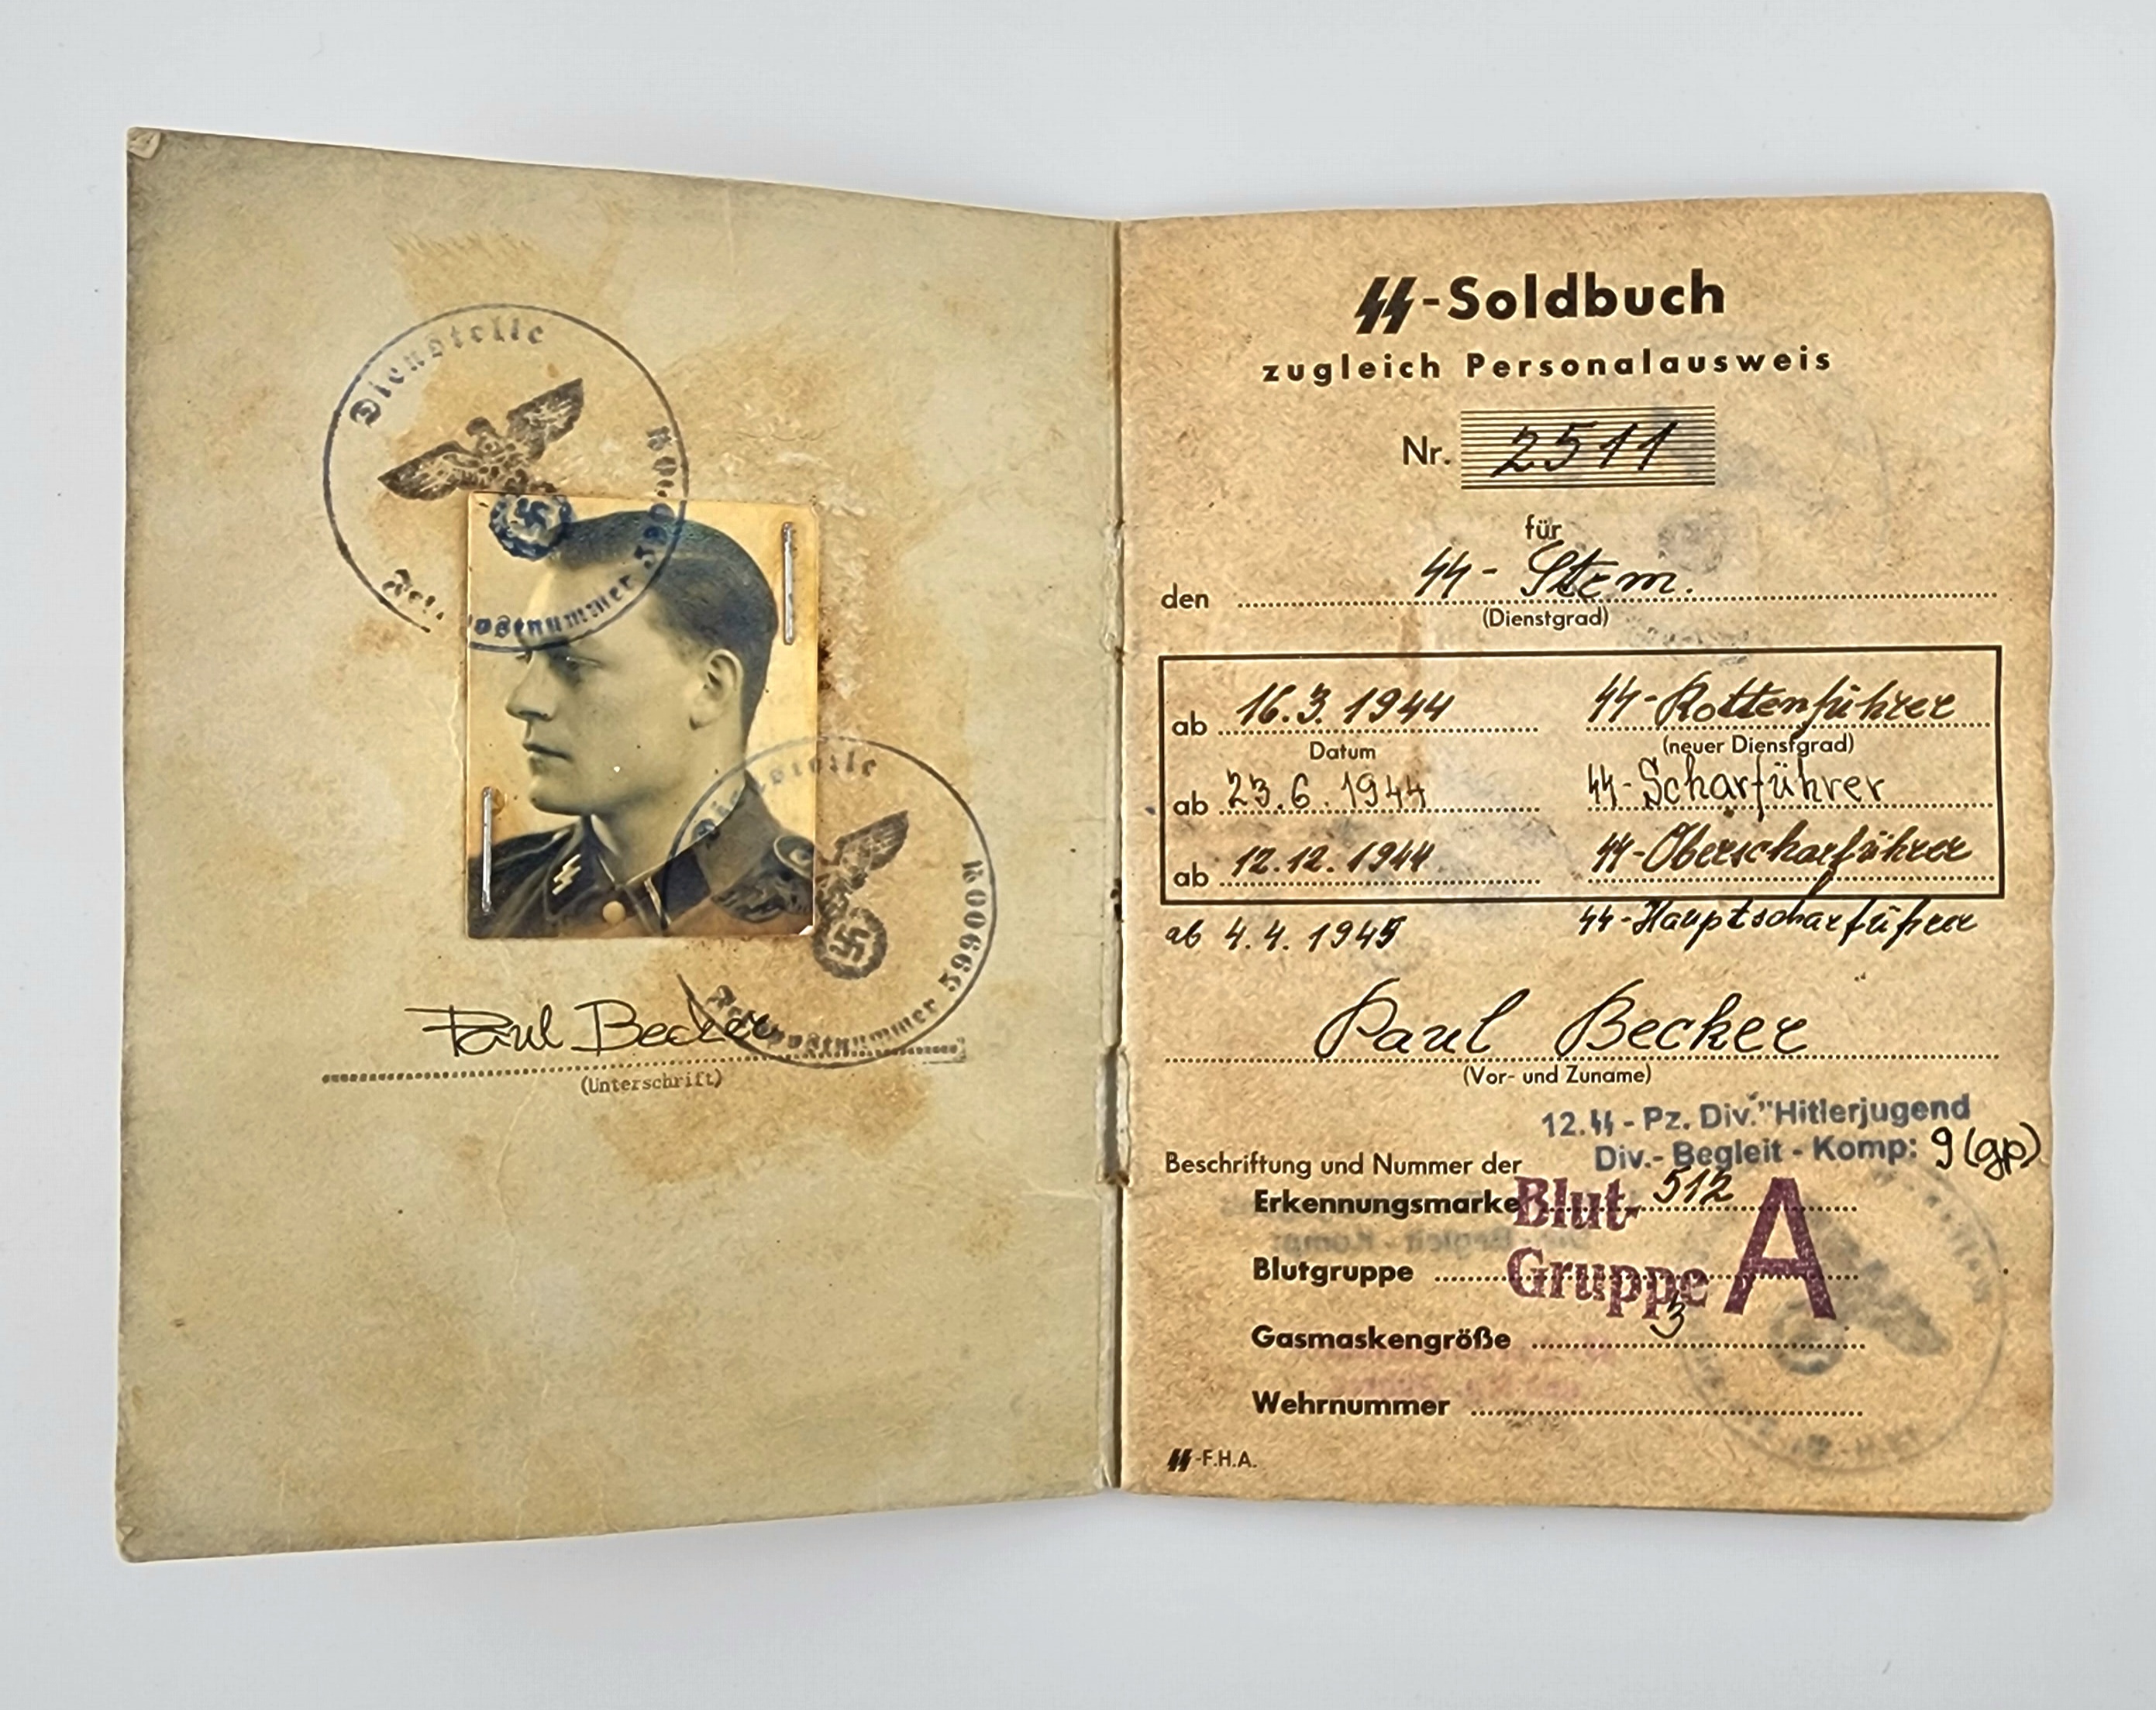 Dienstelle
Feldpostnummer 59900A
Dienstelle
Feldpostnummer 59900A
Paul Becker
(Unterschrift)
ϟϟ-Soldbuch
zugleich Personalausweis
Nr. 2511
für
den ϟϟ-Strm.
(Dienstgrad)
ab 16.3.1944 ϟϟ-Rottenführer
Datum (neuer Dienstgrad)
ab 23.6.1944 ϟϟ-Scharführer
ab 12.12.1944 ϟϟ-Oberscharführer
ab 4.4.1945 ϟϟ-Hauptscharführer
Paul Becker
(Vor- und Zuname)
12.ϟϟ-Pz. Div. "Hitlerjugend
Div.-Begleit-Komp: 9(gp)
Beschriftung und Nummer der
Erkennungsmarke 512
Blut-
Gruppe A
Blutgruppe
Gasmaskengröße 3
Wehrnummer
ϟϟ-F.H.A.